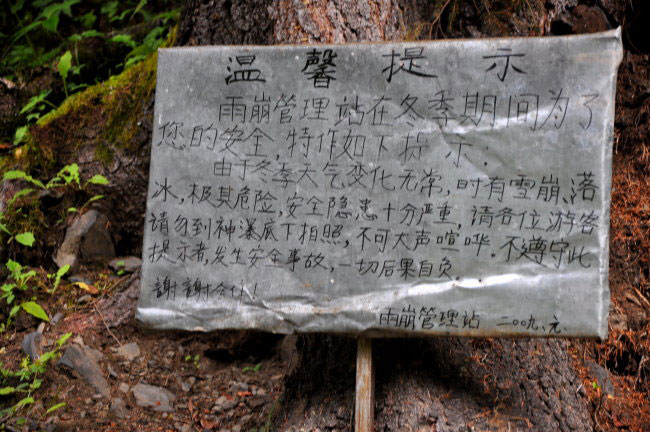 温馨提示
雨崩管理站在冬季期间为了
您的安全,特作如下提示.
由于冬季天气变化无常,时有雪崩、落
冰,极其危险,安全隐患十分严重,请各位游客
请勿到神瀑底下拍照,不可大声喧哗.不遵守此
提示者,发生安全事故,一切后果自负.
謝謝合作!
雨崩管理站 二00九.元